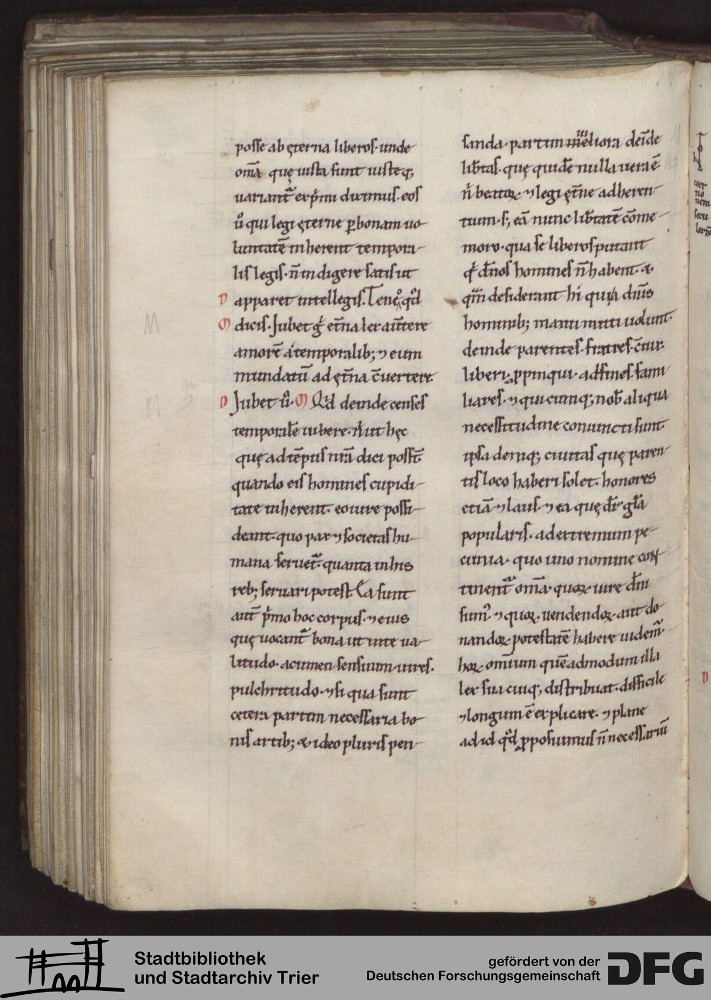 posse ab ęterna liberos· unde
om̄a quę iusta sunt iusteq;
uariant̄ exp̄mi duximus· eos
ů qui legi ęterne ꝑ bonam uo-
luntatē inherent tempora-
lis legis· n̄ indigere satis ut
D apparet intellegis. Teneo qd̓
M dicis. Jubet g̓ et̓na lex au̓tere
amorē a temporalib; ⁊ eum
mundatū ad et̓na c̄uertere
D Jubet ů· M Qd̓ deinde censes
temporalē iubere· n̄ ut hęc
quę ad tēpus nr̄a dici possт̄
quando eis homines cupidi-
tate inherent· eo iure possi-
deant· quo pax ⁊ societas hu-
mana seruet̓· quanta in his
reb; seruari potest. Ea sunt
aut̄ p̓mo hoc corpus· ⁊ eius
quę uocant̓ bona ut inte ua-
litudo· acumen sensuum· uires·
pulchritudo· ⁊ si qua sunt
cetera partim necessaria bo-
nis artib; & ideo pluris pen-
sanda· partim uiliora deīde
lib̓tas· quę quidē nulla uera ē
n̄ beatoꝝ ⁊ legi ęt̓ne adheren-
tium· s; eā nunc lib̓tatē cōme-
moro· qua se liberos putant
q̓ dn̄os homines n̄ habent· &
qm̄ desiderant hi qui a dn̄is
hominib; manu mitti uolunt·
deinde parentes· fratres· c̄iux·
liberi· ꝓpinqui· adfines· fami-
liares· ⁊ quicunq; nob̓ aliqua
necessitudine coniuncti sunt
ipsa deniq; ciuitas quę paren-
tis loco haberi solet· honores
etiā ⁊ laus· ⁊ ea quę dr̄ gl̄a
popularis· ad extremum pe-
cunia· quo uno nomine con-
tinent̓ om̄a· quoꝝ iure dn̄i
sum̓· ⁊ quoꝝ uendendoꝝ aut do-
nandoꝝ potestatē habere uidem̓·
hoꝝ omnium quēadmodum illa
lex sua cuiq; distribuat· difficile
⁊ longum ē explicare· ⁊ plane
ad id qd̓ ꝓposuimus n̄ necessariū
Stadtbibliothek
und Stadtarchiv Trier
gefördert von der
Deutschen Forschungsgemeinschaft
DFG